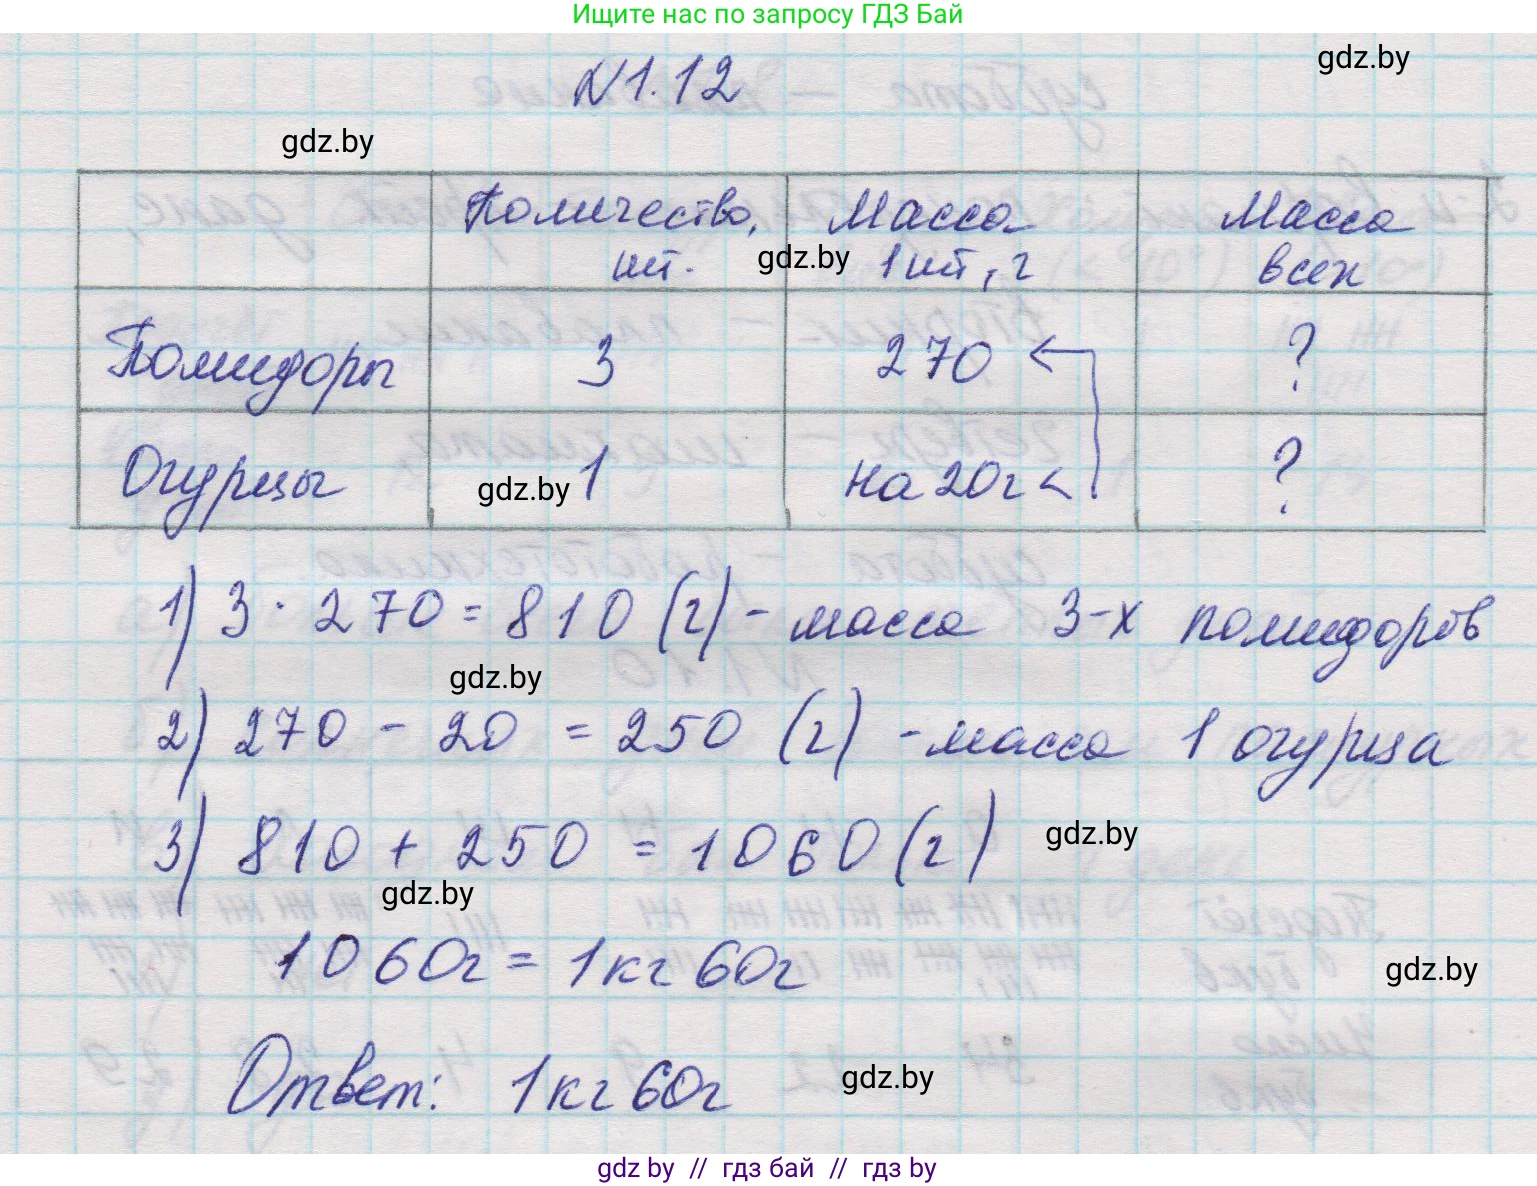 Ищите нас по запросу ГДЗ Бай
gdz.by
N1.12
gdz.by
Количество, шт.
Масса 1шт, г
Масса всех
gdz.by
Помидоры 3 270 ?
Огурцы 1 на 20г < ?
gdz.by
1) 3 · 270 = 810 (г) - масса 3-х помидоров
gdz.by
2) 270 - 20 = 250 (г) - масса 1 огурца
3) 810 + 250 = 1060 (г)
gdz.by
gdz.by
1060г = 1кг 60г
gdz.by
Ответ: 1кг 60г
gdz.by
gdz by // гдз бай // гдз by